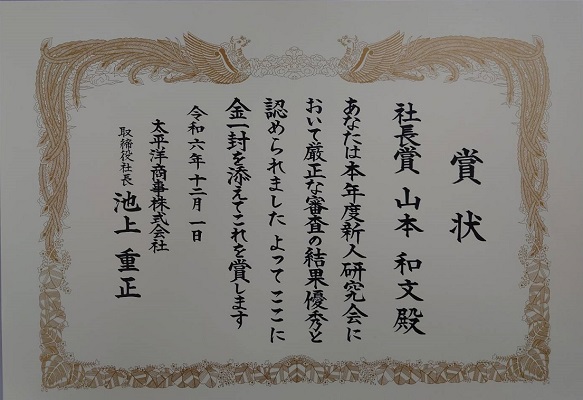 賞状
社長賞 山本 和文 殿
あなたは本年度新人研究会に
おいて厳正な審査の結果優秀と
認められました よって ここに
金一封を添えてこれを賞します
令和六年十二月一日
太平洋商事株式会社
取締役社長 池上 重正